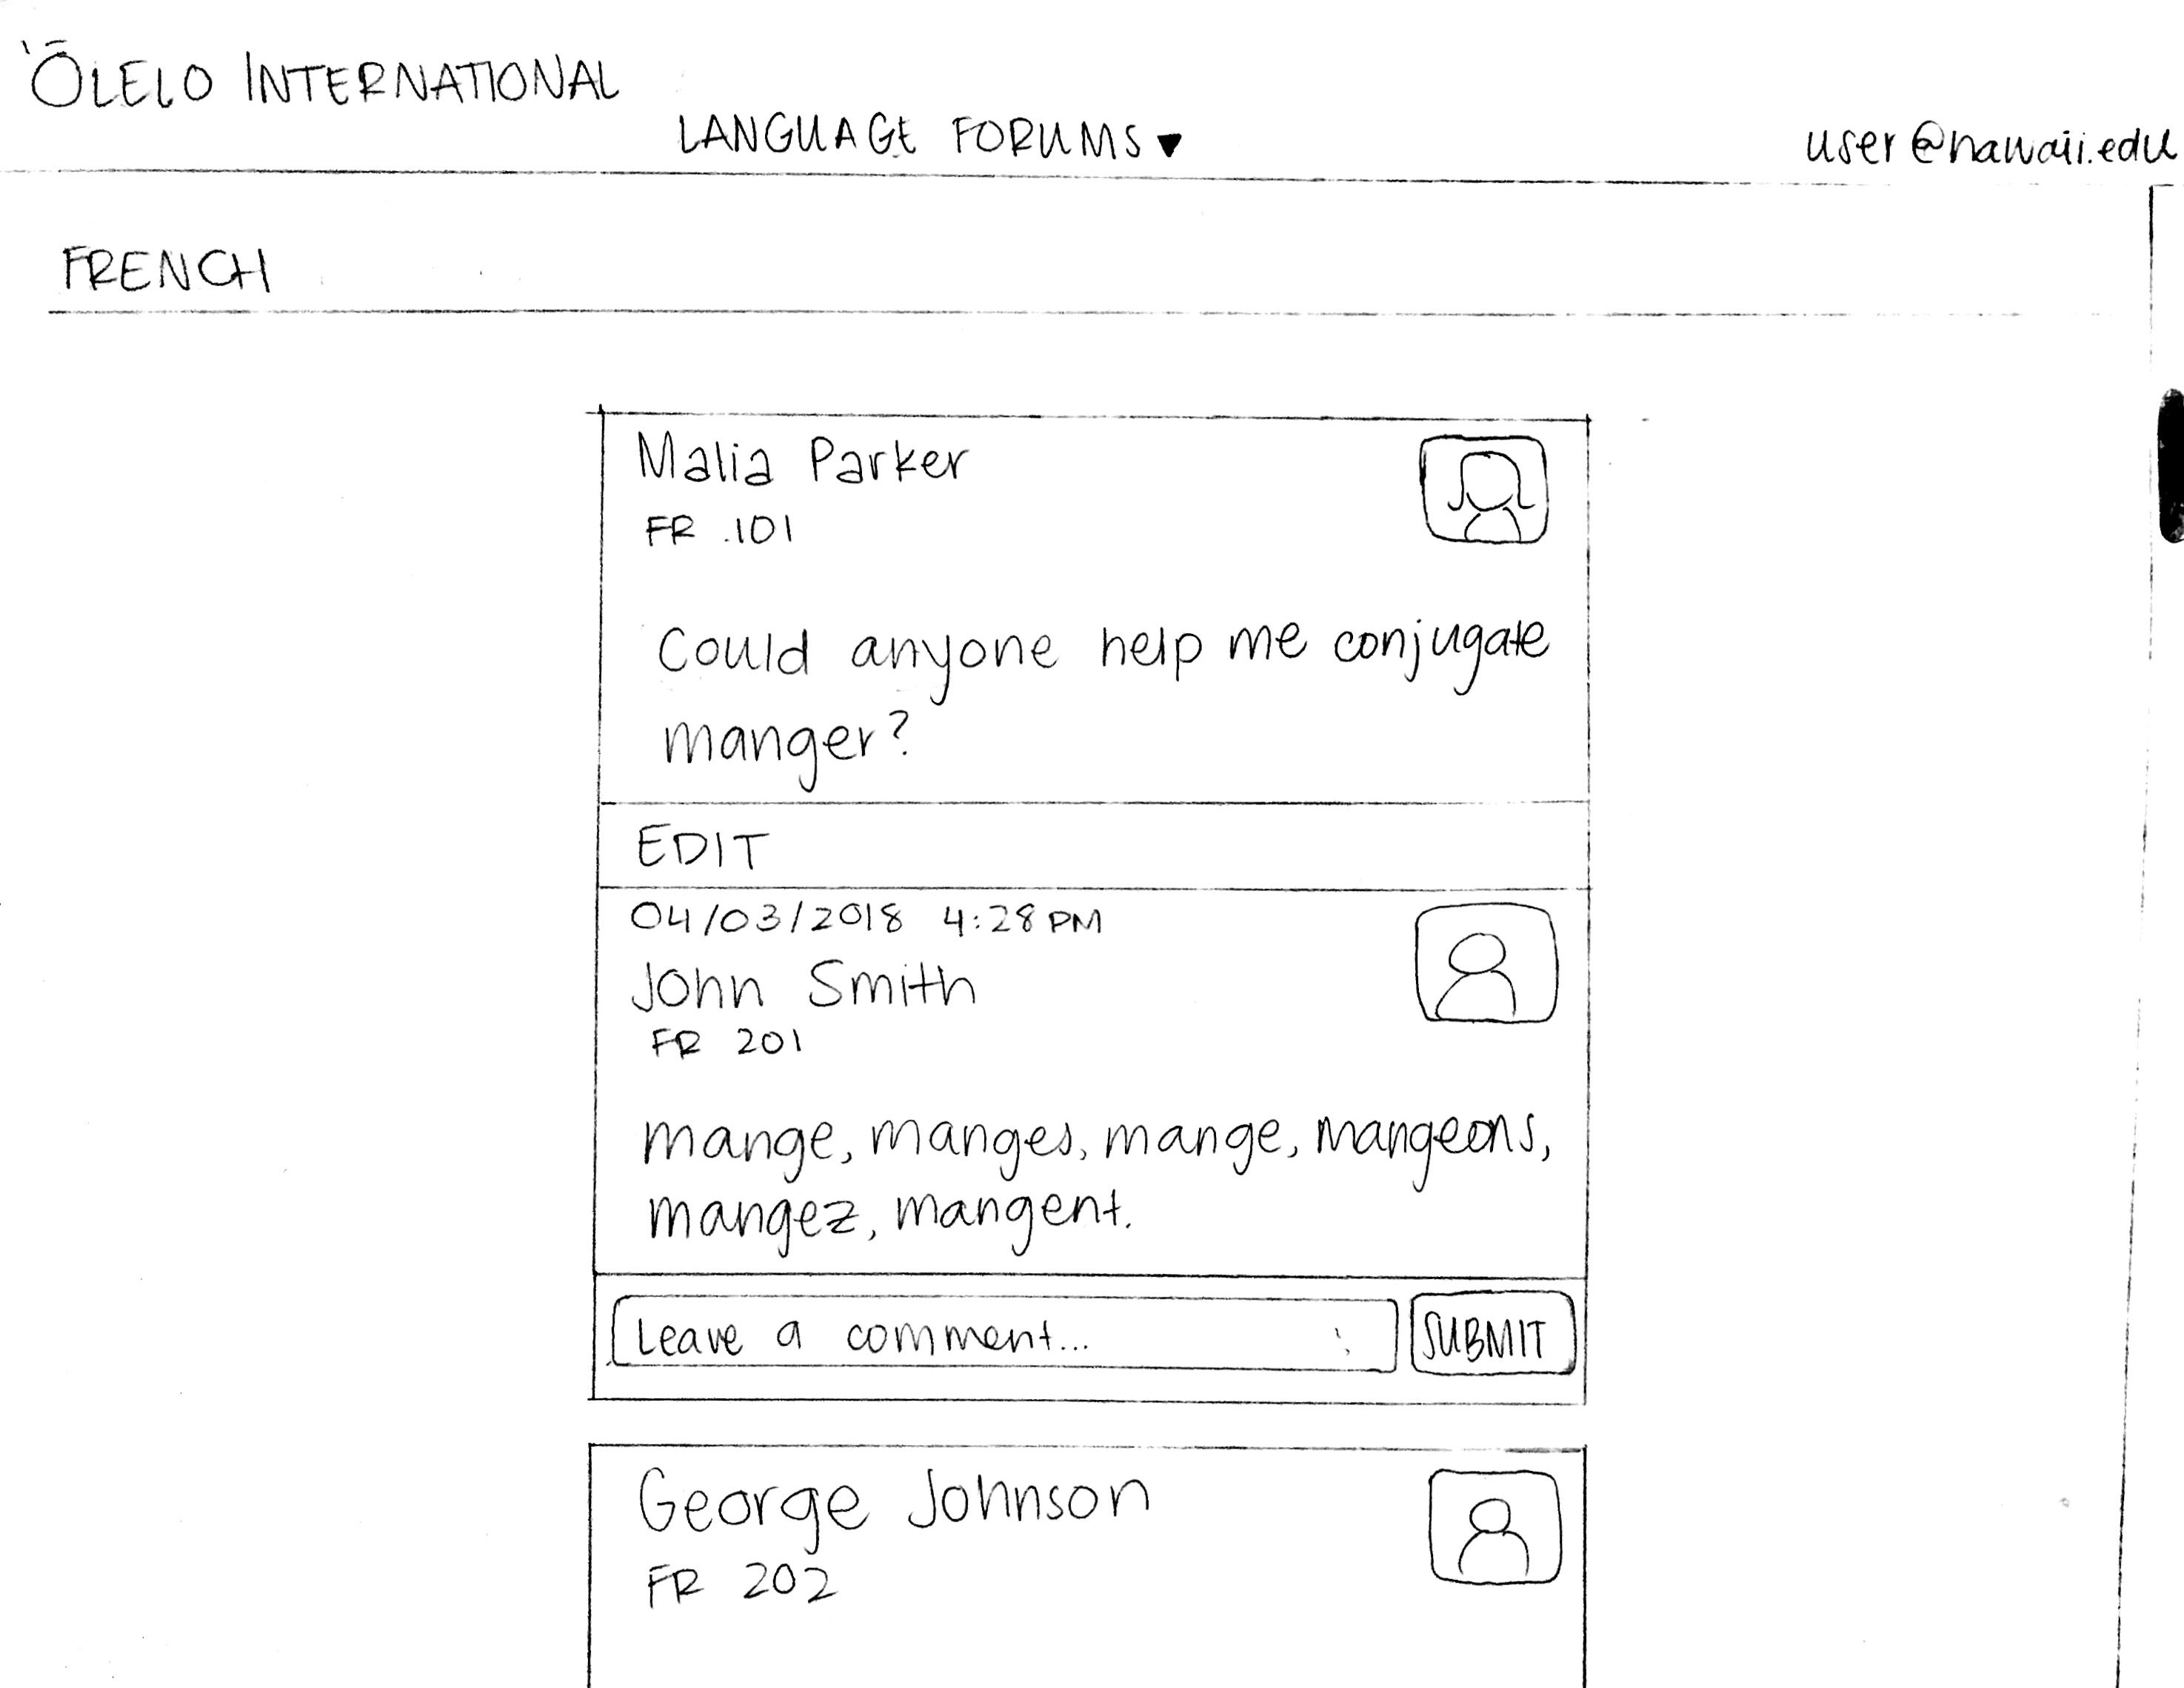 ʻŌLELO INTERNATIONAL
LANGUAGE FORUMS▼
user@hawaii.edu
FRENCH
Malia Parker
FR 101
Could anyone help me conjugate
manger?
EDIT
04/03/2018 4:28 PM
John Smith
FR 201
mange, manges, mange, mangeons,
mangez, mangent.
Leave a comment...
SUBMIT
George Johnson
FR 202